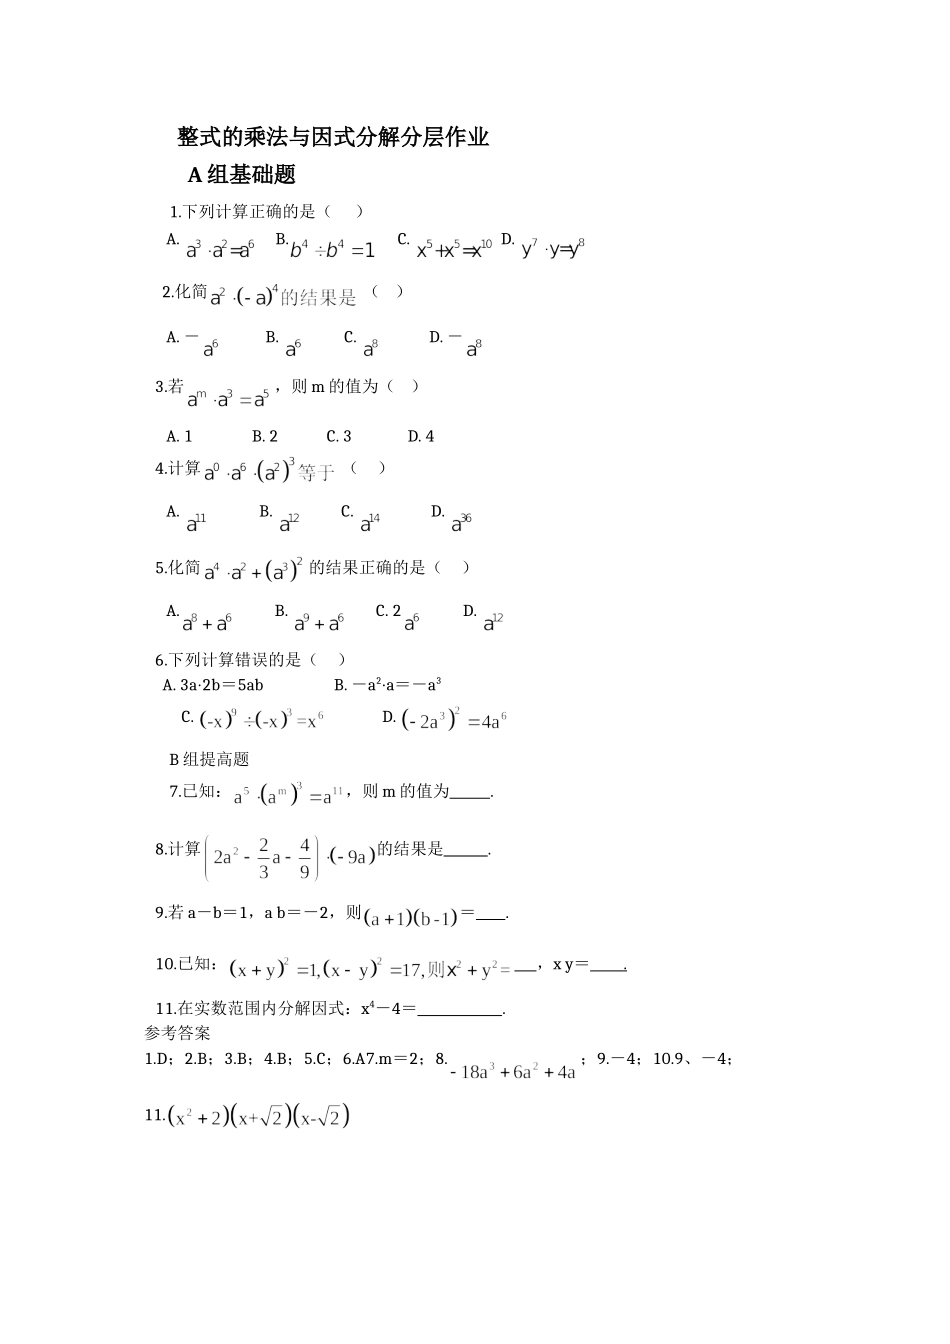 整式的乘法与因式分解分层作业
A 组基础题
1.下列计算正确的是（ ）
A. a³·a²=a⁶ B. b⁴÷b⁴=1 C. x⁵+x⁵=x¹⁰ D. y⁷·y=y⁸
2.化简a²·(-a)⁴的结果是（ ）
A. －a⁶ B. a⁶ C. a⁸ D. －a⁸
3.若aᵐ·a³=a⁵，则 m 的值为（ ）
A. 1 B. 2 C. 3 D. 4
4.计算a⁰·a⁶·(a²)³等于（ ）
A. a¹¹ B. a¹² C. a¹⁴ D. a³⁶
5.化简a⁴·a²+(a³)²的结果正确的是（ ）
A. a⁸+a⁶ B. a⁹+a⁶ C. 2a⁶ D. a¹²
6.下列计算错误的是（ ）
A. 3a·2b＝5ab B. －a²·a＝－a³
C. (-x)⁹÷(-x)³=x⁶ D. (-2a³)²=4a⁶
B 组提高题
7.已知：a⁵·(aᵐ)³=a¹¹，则 m 的值为_____.
8.计算(2a²-2/3a-4/9)·(-9a)的结果是_____.
9.若 a－b＝1，a b＝－2，则(a+1)(b-1)＝____.
10.已知：(x+y)²=1,(x-y)²=17,则x²+y²=___，x y＝_____.
11.在实数范围内分解因式：x⁴－4＝__________.
参考答案
1.D；2.B；3.B；4.B；5.C；6.A7.m＝2；8.-18a³+6a²+4a；9.－4；10.9、－4；
11.(x²+2)(x+√2)(x-√2)